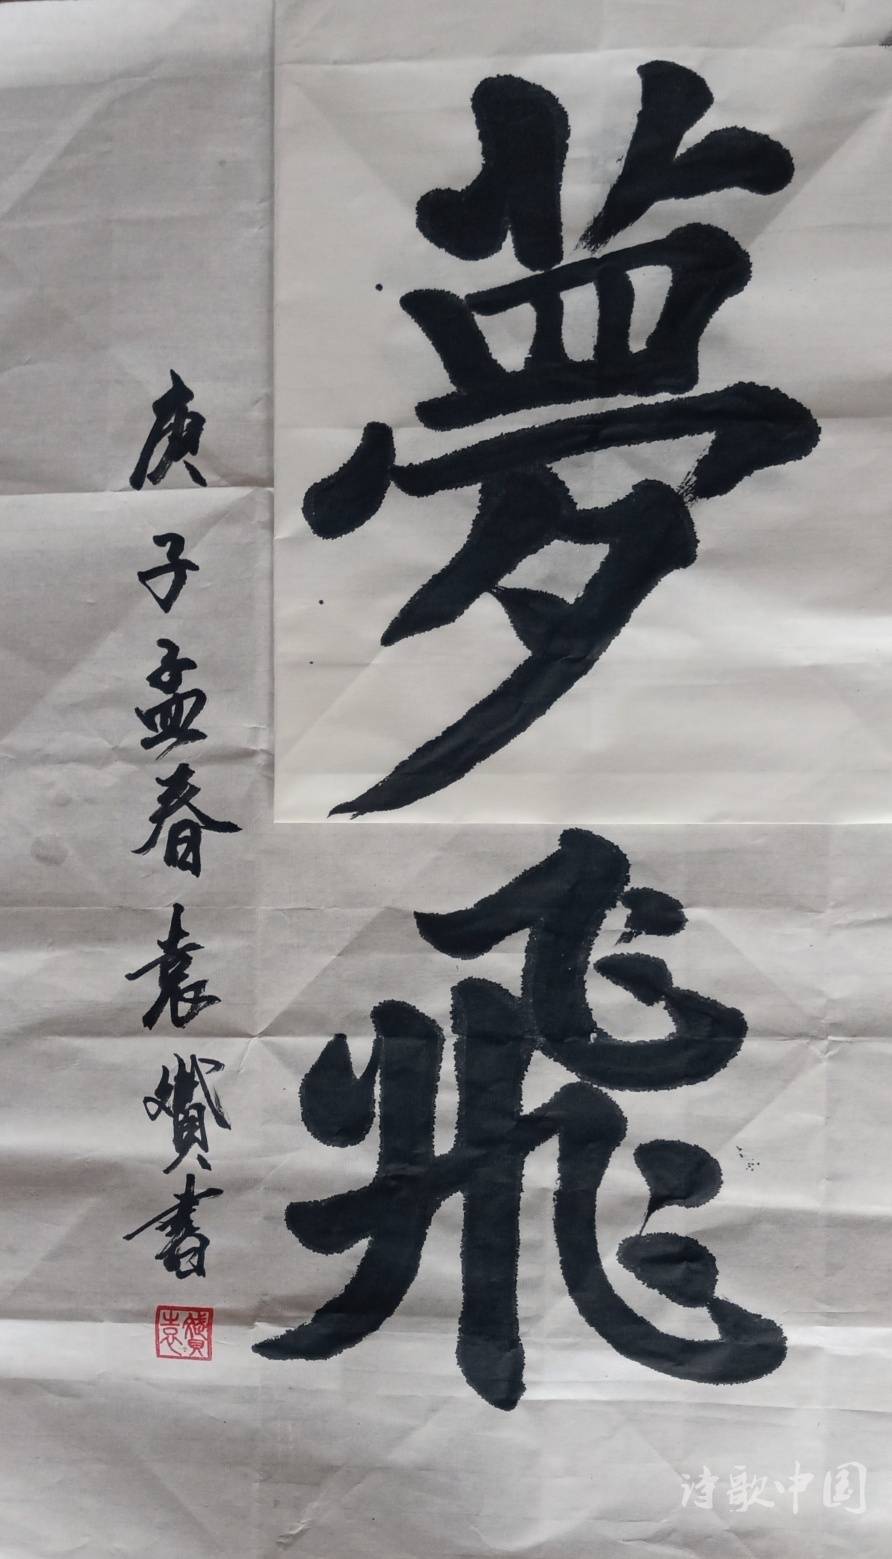 夢飛
庚子孟春袁贇書
袁贇
诗歌中国